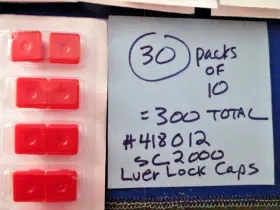 30 packs
OF
10
= 300 TOTAL
#418012
SC2000
Luer Lock Caps